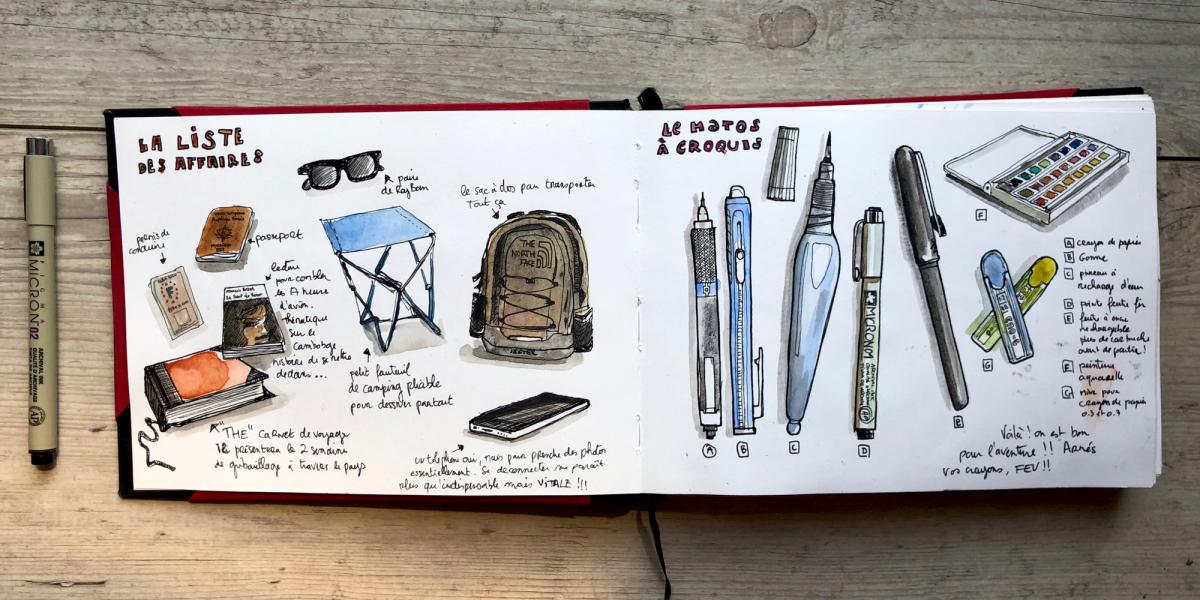 MICRON 02
ARCHIVAL INK
LA LISTE
DES AFFAIRES
paire
de Rayban
le sac à dos pour transporter
Tout ça
passeport
permis de
conduire
THE
NORTH
FACE
JESTER
lecture
pour combler
les heures
d'avion.
Thématique
sur le
Cambodge
histoire de se mettre
dedans...
petit fauteuil
de camping pliable
pour dessiner partout
"THE" Carnet de voyage
présentera les 2 semaines
de à travers le pays
un telephone oui, mais pour prendre des photos
essentiellement. Se deconnecter me parait
plus qu'indispensable mais VITALE !!!
LE MATOS
À CROQUIS
MICRON
A
B
C
D
E
F
G
A crayon de papier
B Gomme
C pinceau à
rechargе d'eau
D pointe feutre fin
E feutre à encre
rechargeable
plus de cartouche
avant de partir !
F peinture
aquarelle
G mine pour
crayon de papier
0.5 et 0.7
Voilà ! on est bon
pour l'aventure !! Armés
vos crayons, FEU !!